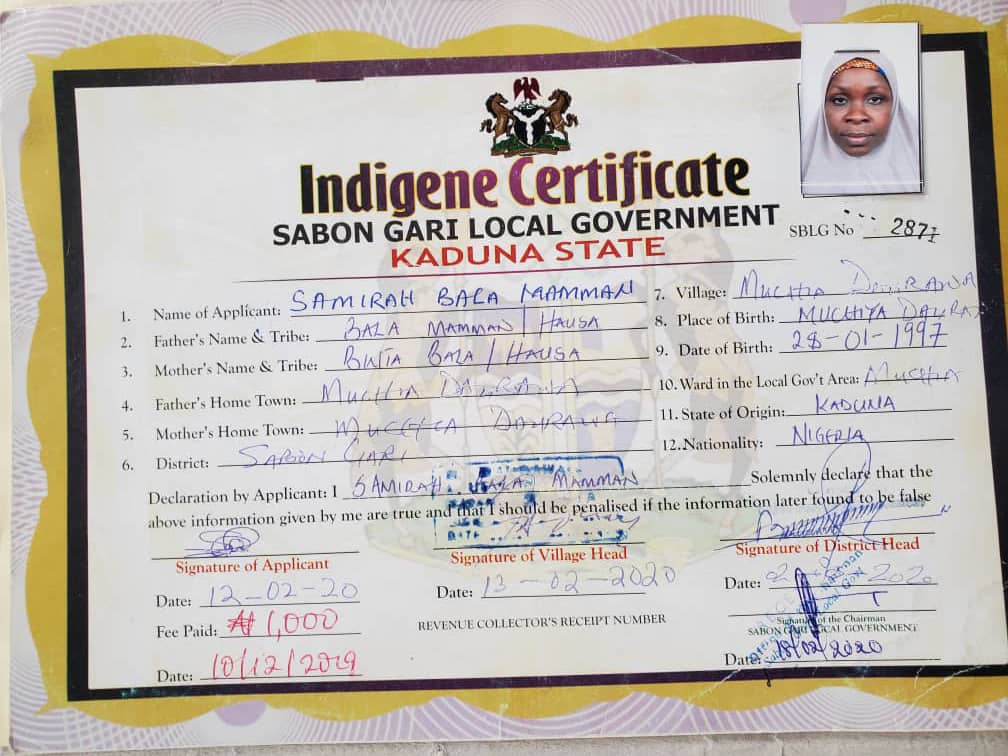 Indigene Certificate
SABON GARI LOCAL GOVERNMENT
KADUNA STATE
SBLG No 2871
1. Name of Applicant: SAMIRAH BALA MAMMAN
2. Father's Name & Tribe: BALA MAMMAN / HAUSA
3. Mother's Name & Tribe: BINTA BALA / HAUSA
4. Father's Home Town: MUCHIA
5. Mother's Home Town:
6. District: SABON GARI
7. Village: MUCHIA
8. Place of Birth: MUCHIYA
9. Date of Birth: 28-01-1997
10. Ward in the Local Gov't Area: MUCHIA
11. State of Origin: KADUNA
12. Nationality: NIGERIA
Declaration by Applicant: I SAMIRAH BALA MAMMAN Solemnly declare that the
above information given by me are true and that I should be penalised if the information later found to be false
Signature of Applicant
Date: 12-02-20
Fee Paid: ₦ 1,000
Date: 10/12/2019
Signature of Village Head
Date: 13-02-2020
REVENUE COLLECTOR'S RECEIPT NUMBER
Signature of District Head
Date: 2020
Signature of the Chairman
SABON GARI LOCAL GOVERNMENT
Date: 18/02/2020